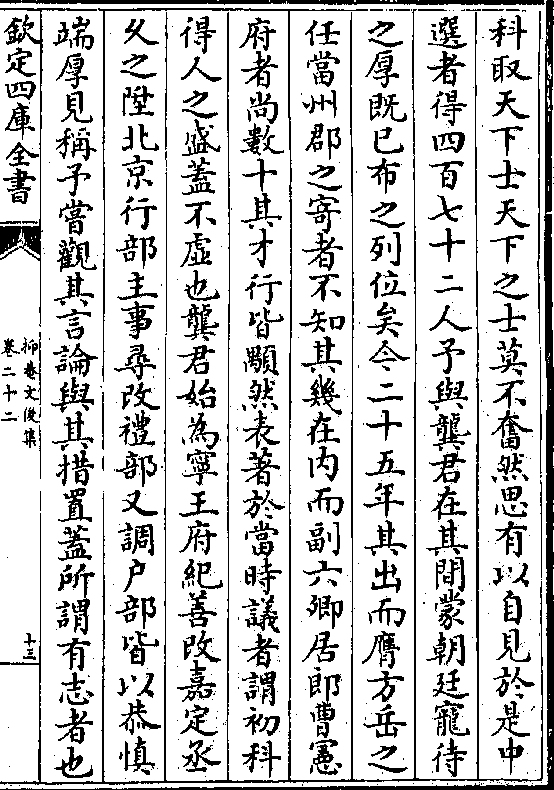 科取天下士天下之士莫不奮然思有以自見於是中
選者得四百七十二人予與龔君在其間蒙朝廷寵待
之厚既已布之列位矣今二十五年其出而膺方岳之
任當州郡之寄者不知其幾在内而副六卿居郎曹憲
府者尚數十其才行皆顯然表著於當時議者謂初科
得人之盛蓋不虛也龔君始為寧王府紀善改嘉定丞
久之陞北京行部主事尋改禮部又調户部皆以恭慎
端厚見稱予嘗觀其言論與其措置蓋所謂有志者也
欽定四庫全書
抑菴文後集
卷二十二
十三